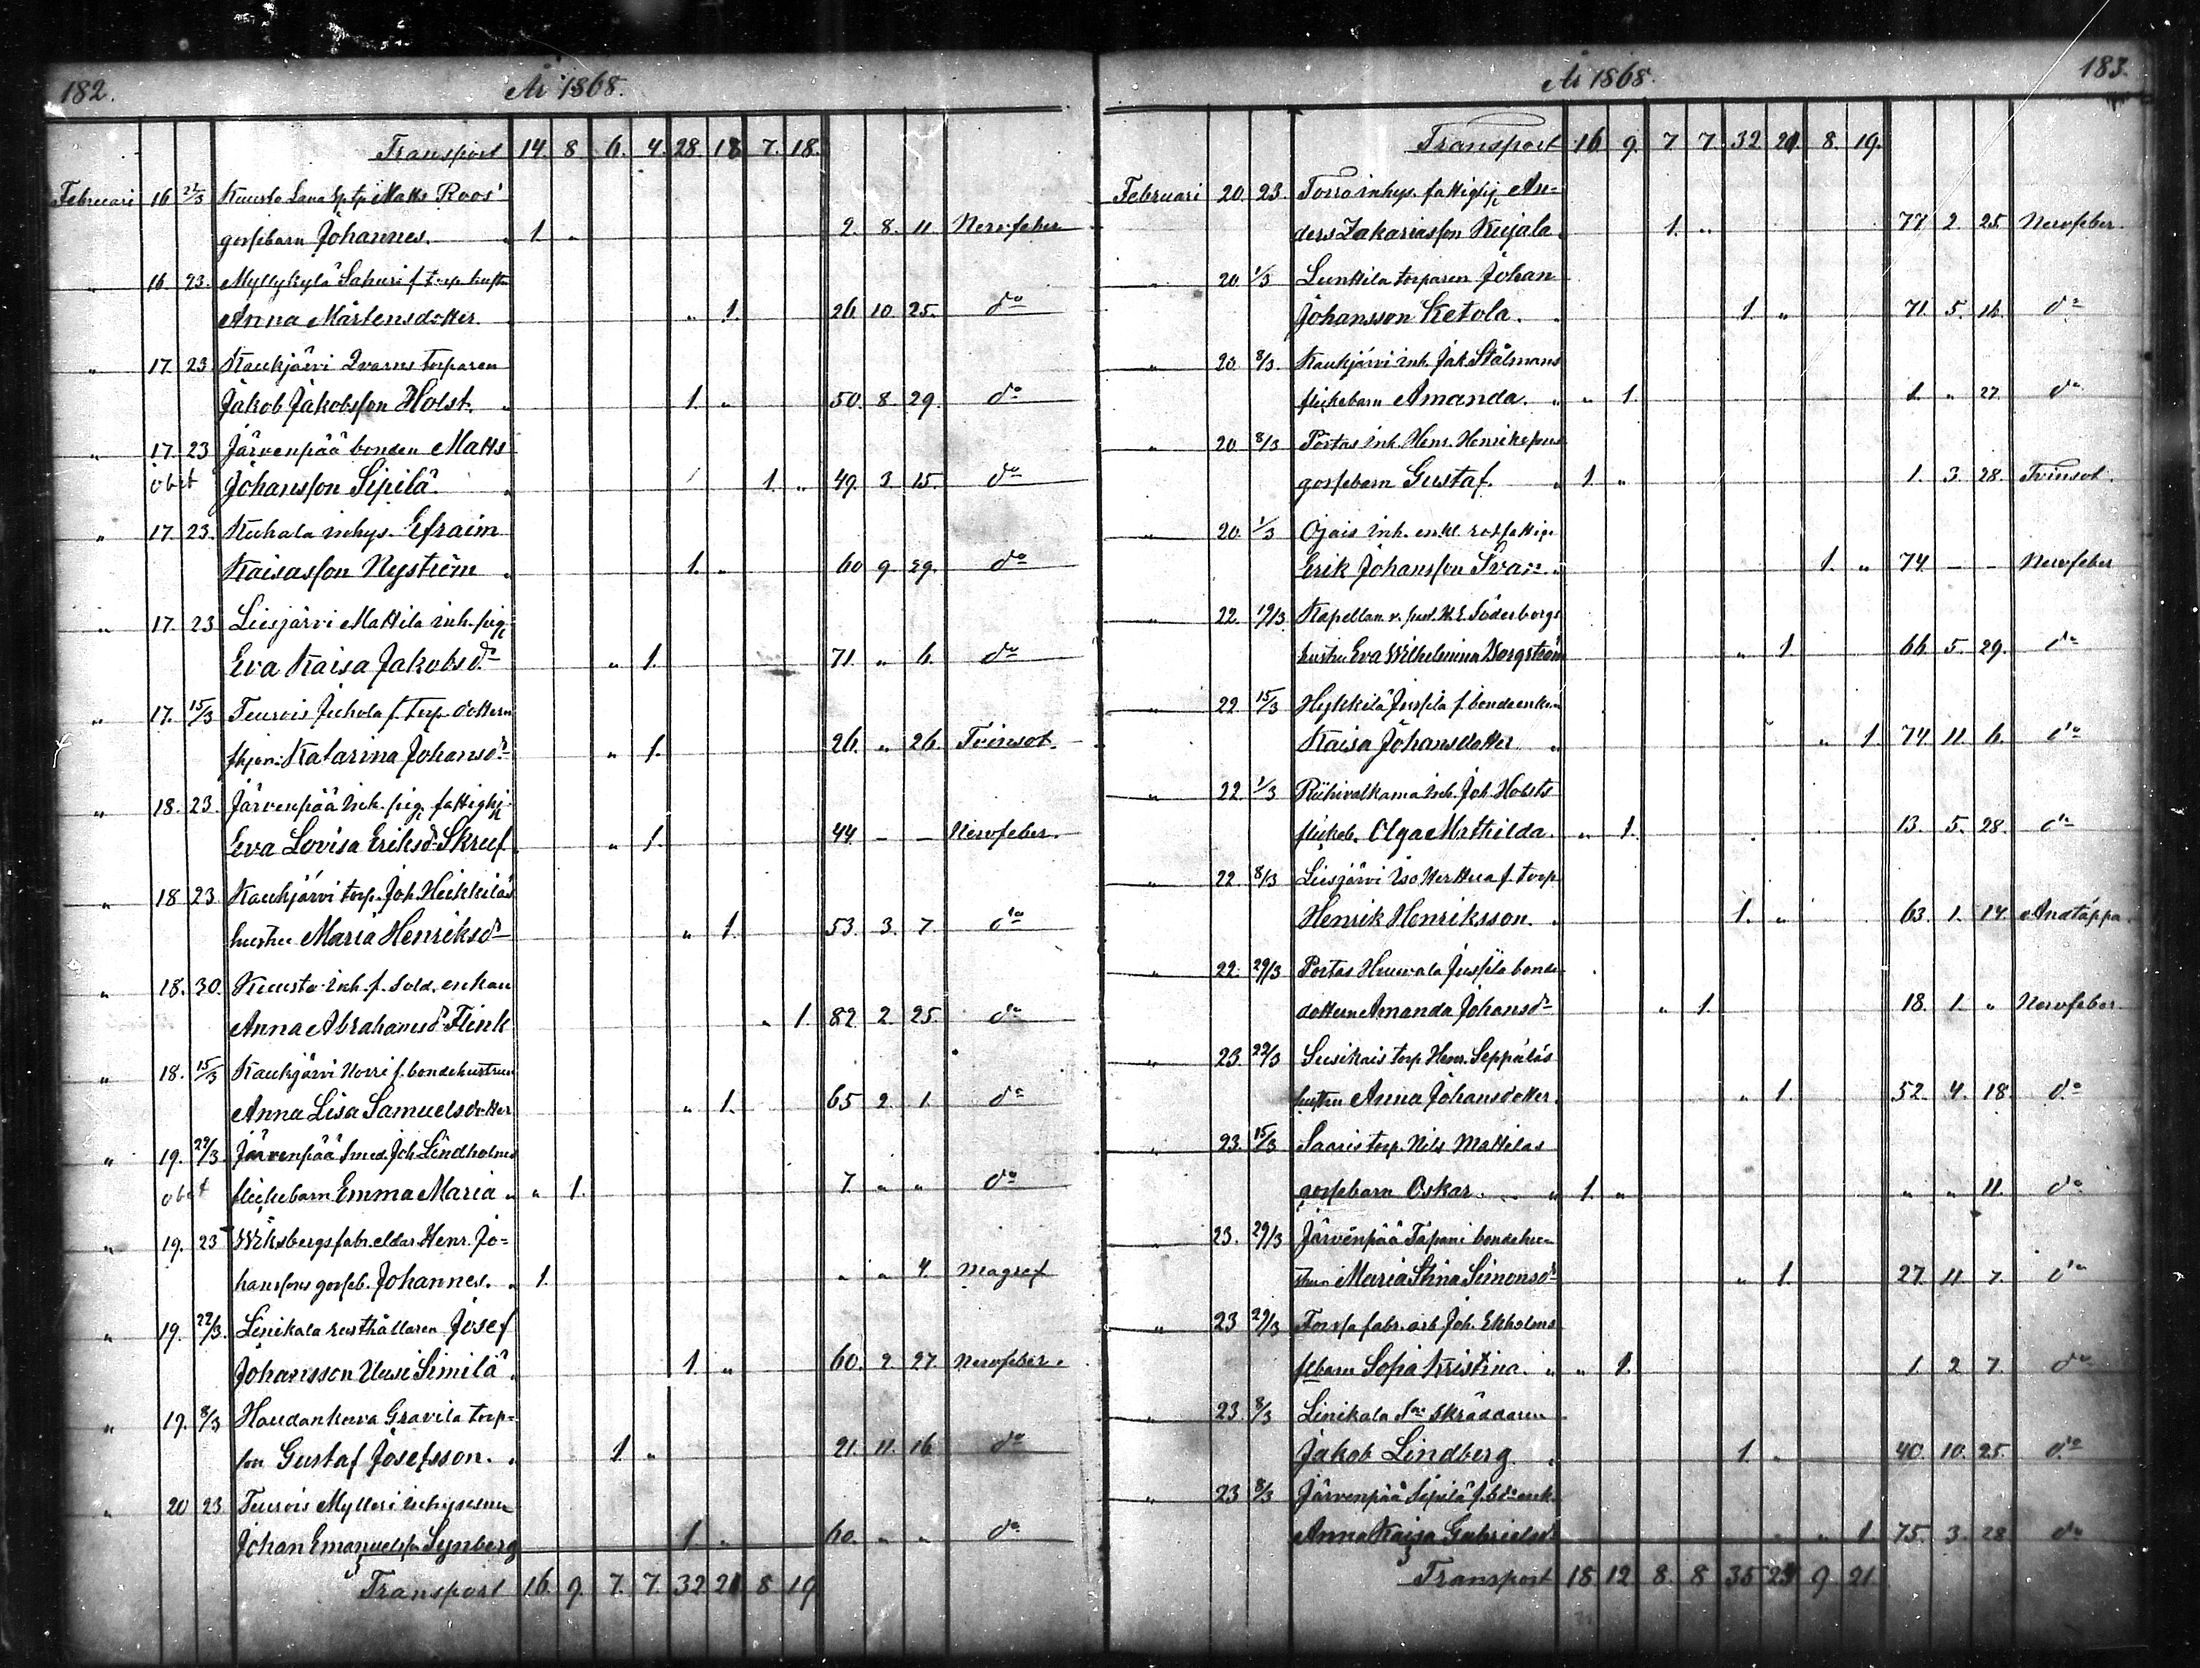 182. År 1868.
Transport 14. 8 6. 4. 28. 18 7. 18.
Februari 16 22/3 Kuusto Lava Matts Roos'
gossebarn Johannes. " 1. " 2. 8. 11 Nervfeber
" 16. 23. Myllykylä Sahuri f. torp. hustr.
Anna Mårtensdotter. " 1. 26 10 25. do
" 17. 23 Kaukjärvi Qvarns torparen
Jakob Jakobsson Holst. " 1. " 50. 8. 29. do
" 17. 23 Järvenpää bonden Matts
obet Johansson Sipilä. " 1. " 49. 3 15. do
" 17 23. Kuhala inhys. Efraim
Kaisasson Nyström " 1. " 60 9 29. do
" 17. 23 Liesjärvi Mattila inh. pig.
Eva Kaisa Jakobsdr " 1. 71. " 6. do
" 17. 15/3 Teurois Juhola f. torp. dottern
Katarina Johansdr " 1. 26. " 26. Tvinsot.
" 18. 23. Järvenpää inh. pig. fattighj.
Eva Lovisa Eriksdr Skruf " 1. 44 – – Nervfeber.
" 18 23. Kaukjärvi torp. Joh. Heikkiläs
hustru Maria Henriksdr " 1. 53. 3. 7. do
" 18. 30. Kuusto inh. f. sold. enkan
Anna Abrahamsdr Flink " 1. 82 2. 25. do
" 18. 15/3 Kaukjärvi Uotri f. bondehustrun
Anna Lisa Samuelsdotter " 1. 65 2. 1. do
" 19. 22/3. Järvenpää smed. Joh. Lindholms
obet flickebarn Emma Maria " " 1. 7. " " do
" 19. 23 Wiksbergs fabr. eldar. Henr. Jo=
hanssons gosseb. Johannes. " 1. " " 4. Magref
" 19. 22/3. Linikala rusthållaren Josef
Johansson Uusi Simila. 1. " 60. 2 27 Nervfeber.
" 19. 8/3 Haudankorva Gravila torp=
son Gustaf Josefsson. " 1 " 21. 11. 16 do
" 20 23. Teurois Mylläri inhysesman
Johan Emanuelsson Synberg 1. " 60. " " do
Transport 16. 9. 7. 7. 32 21 8 19
År 1868. 183.
Transport 16 9. 7 7. 32 21 8. 19.
Februari 20. 23. Torro inhys. fattighj. An=
ders Zakariasson Kujala 1. " 77 2. 25. Nervfeber.
" 20 1/3 Lunttila torparen Johan
Johansson Ketola. " 1. " 71. 5. 16. do
" 20. 8/3. Kaukjärvi inh. Jak. Stålmans
flickebarn Amanda. " " 1. 1. " 27 do
" 20. 8/3 Portas inh. Henr. Henrikssons
gossebarn Gustaf. " 1. " 1. 3. 28. Tvinsot.
" 20. 1/3 Ojais inh. enkl. rotfattige
Erik Johansson Svan. " 1. " 74. – – Nervfeber
" 22 19/3. Kapellan. Söderborgs
hustru Eva Wilhelmina Borgström " 1 66. 5. 29. do
" 22 15/3 Hykkilä Jussila f. bondeenkan
Kaisa Johansdotter " " 1. 74. 11. 6. do
" 22. 1/3 Riihivalkama inh. Joh. Holsts
flickeb. Olga Mathilda. " 1. 13. 5. 28. do
" 22. 8/3 Liesjärvi Iso Kerttua f. torp
Henrik Henriksson. " 1. " 63. 1. 14 Andtäppa.
" 22. 29/3 Portas Huuvala Jussila bonde
dottern Amanda Johansdr " 1. 18. 1. " Nervfeber
" 23. 22/3 Susikais torp. Henr. Seppäläs
hustru Anna Johansdotter. " 1. 52. 4. 18. do
" 23. 15/3 Saaris torp. Nils Mattilas
gossebarn Oskar. " 1. " " " 11. do
" 23. 29/3 Järvenpää Tapani bondehu-
strun Maria Stina Simonsdr " 1. 27. 11 7. do
" 23 29/3 Forssa fabr. arb. Joh. Ekholms
flbarn Sofia Kristina. " " 1. 1. 2 7. do
" 23. 8/3 Linikala skräddaren
Jakob Lindberg. " 1. " 40. 10. 25. do
" 23 8/3 Järvenpää Sipilä f. bdeenk.
Anna Kaisa Gabrielsdr " 1. 75. 3. 28 do
Transport 18 12 8. 8 35 24 9. 21